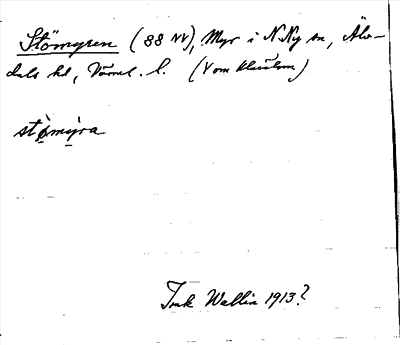 Stömyren (88 NV), Myr i N. Ny sn, Älv-
dals hd, Värml. l. (V om Klarälven)
stö̀mýra
Ink Wallin 1913?